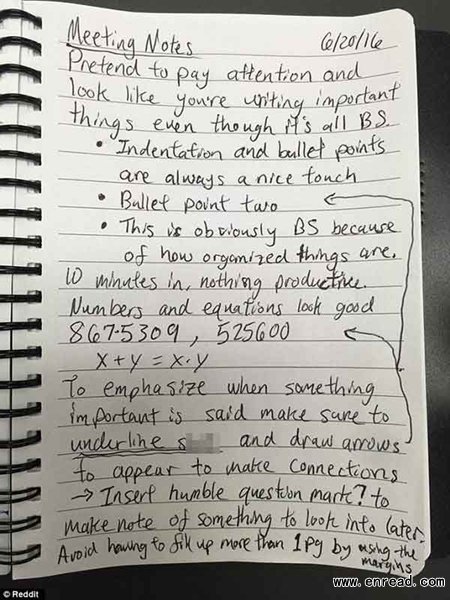 Meeting Notes 6/20/16
Pretend to pay attention and
look like you're writing important
things even though it's all BS
• Indentation and bullet points
are always a nice touch
• Bullet point two
• This is obviously BS because
of how organized things are.
10 minutes in, nothing productive.
Numbers and equations look good
867-5309, 525600
x + y = x · y
To emphasize when something
important is said make sure to
underline s and draw arrows
to appear to make connections
→ Insert humble question mark? to
make note of something to look into later.
Avoid having to fill up more than 1 pg by using the
margins
© Reddit
www.enread.com